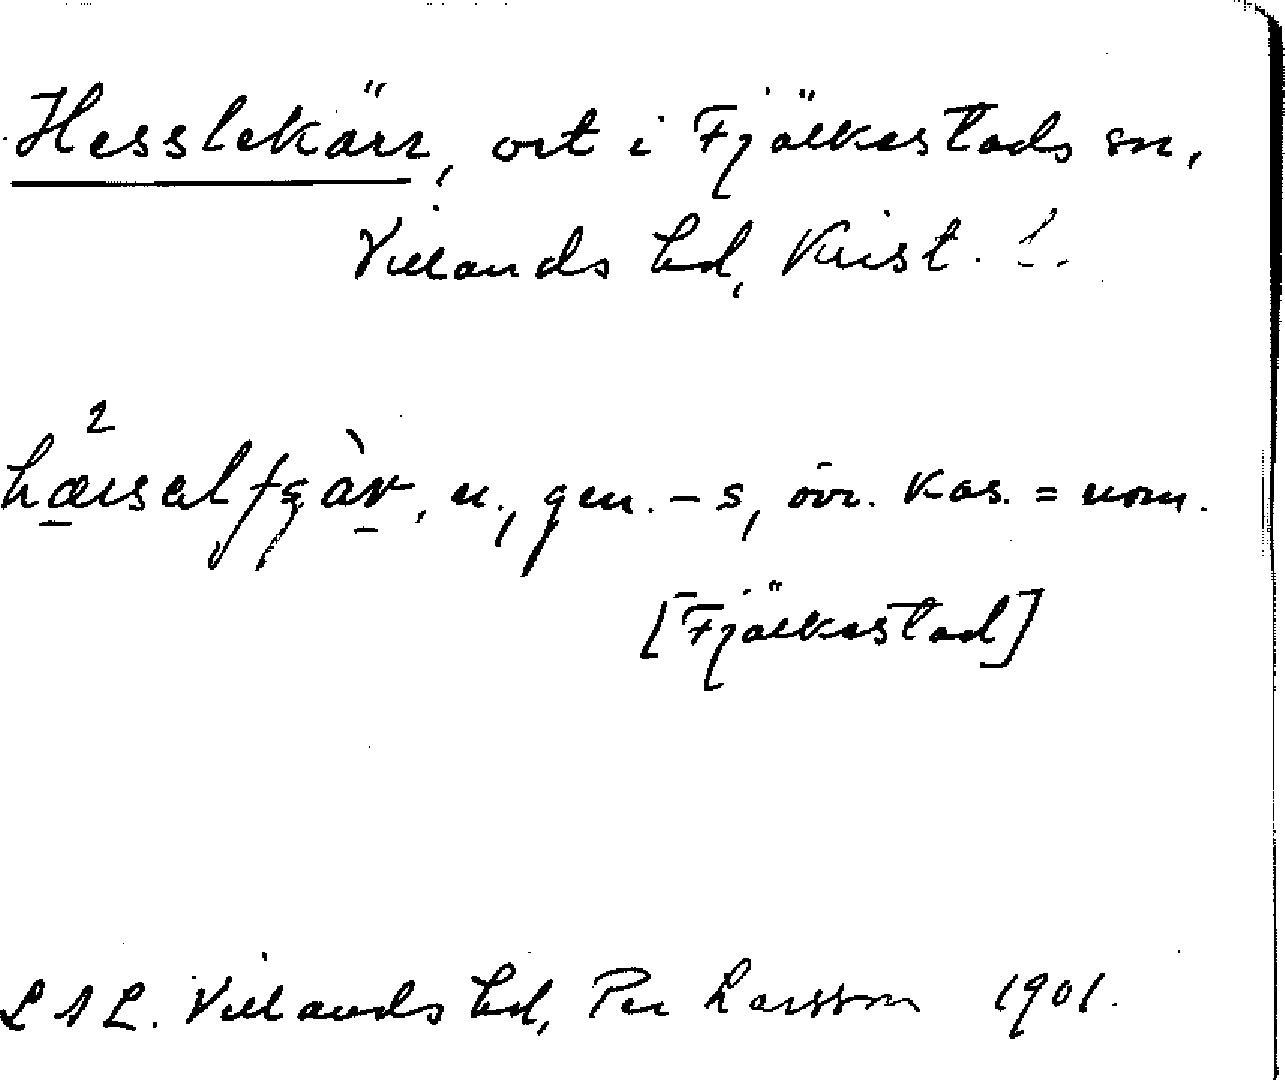 Hesslekärr, ort i Fjälkestads sn,
Villands hd, Krist. l.
n., gen. -s, övr. kas. = nom.
[Fjälkestad]
LAL. Villands hd, Per Larsson 1901.